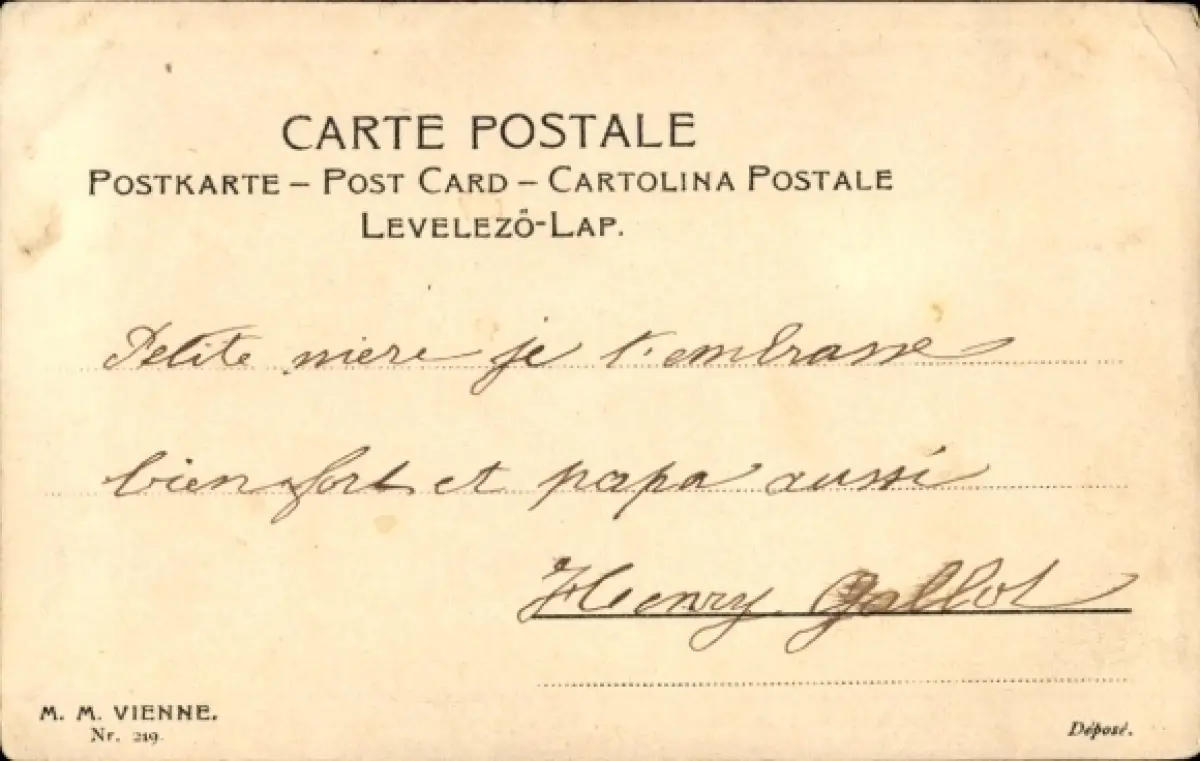 CARTE POSTALE
POSTKARTE – POST CARD – CARTOLINA POSTALE
LEVELEZŐ-LAP.
Petite mère je t'embrasse
bien fort et papa aussi
Henry Gallot
M. M. VIENNE.
Nr. 219.
Déposé.